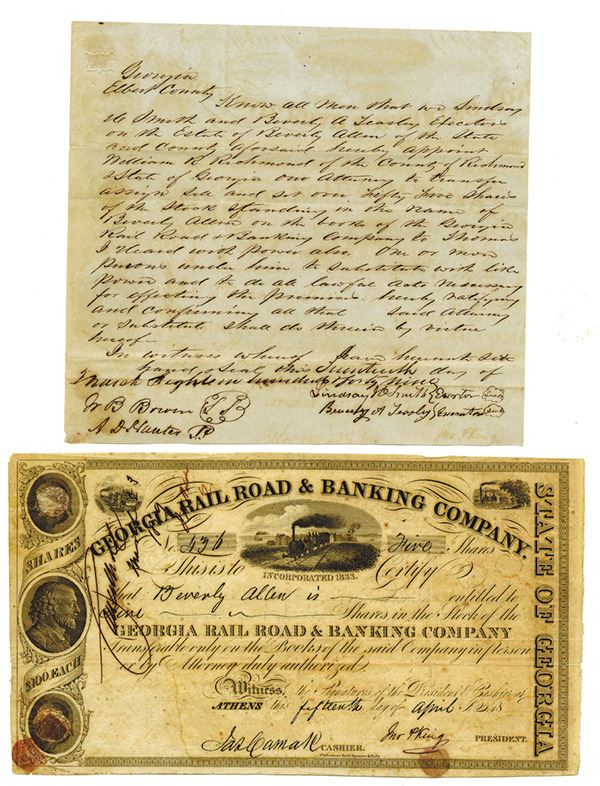 Georgia
Elbert County
Know all Men that we Lindsay
H Smith and Beverly A Teasley Executors
on the Estate of Beverly Allen of the State
and County aforsaid hereby appoint
William R Richmond of the County of Richmond
& State of Georgia our Attorney to transfer
assign sell and set over Fifty Five Shares
of the Stock standing in the name of
Beverly Allen on the books of the Georgia
Rail Road & Banking Company to Thomas
J Heard with power also One or more
persons under him to substitute with like
power and to do all lawful acts necessary
for effecting the premises hereby ratifying
and confirming all that said Attorney
or substitute shall do therein by virtue
hereof
In witness whereof have hereunto set
hand & Seal this day of
March Eighteen hundred & forty nine
Lindsay H Smith Executor Seal
W B Bowen Beverly A Teasley Executor Seal
GEORGIA RAIL ROAD & BANKING COMPANY.
STATE OF GEORGIA
SHARES
$100 EACH
No. 136 Five Shares
INCORPORATED 1833.
This is to Certify
that Beverly Allen is entitled to
Five Shares in the Stock of the
GEORGIA RAIL ROAD & BANKING COMPANY
transferable only on the Books of the said Company in person
or by Attorney duly authorized
Witness, the Signatures of the President & Cashier, at
ATHENS this fifteenth day of April
Jas Camak CASHIER. Jno P King PRESIDENT.